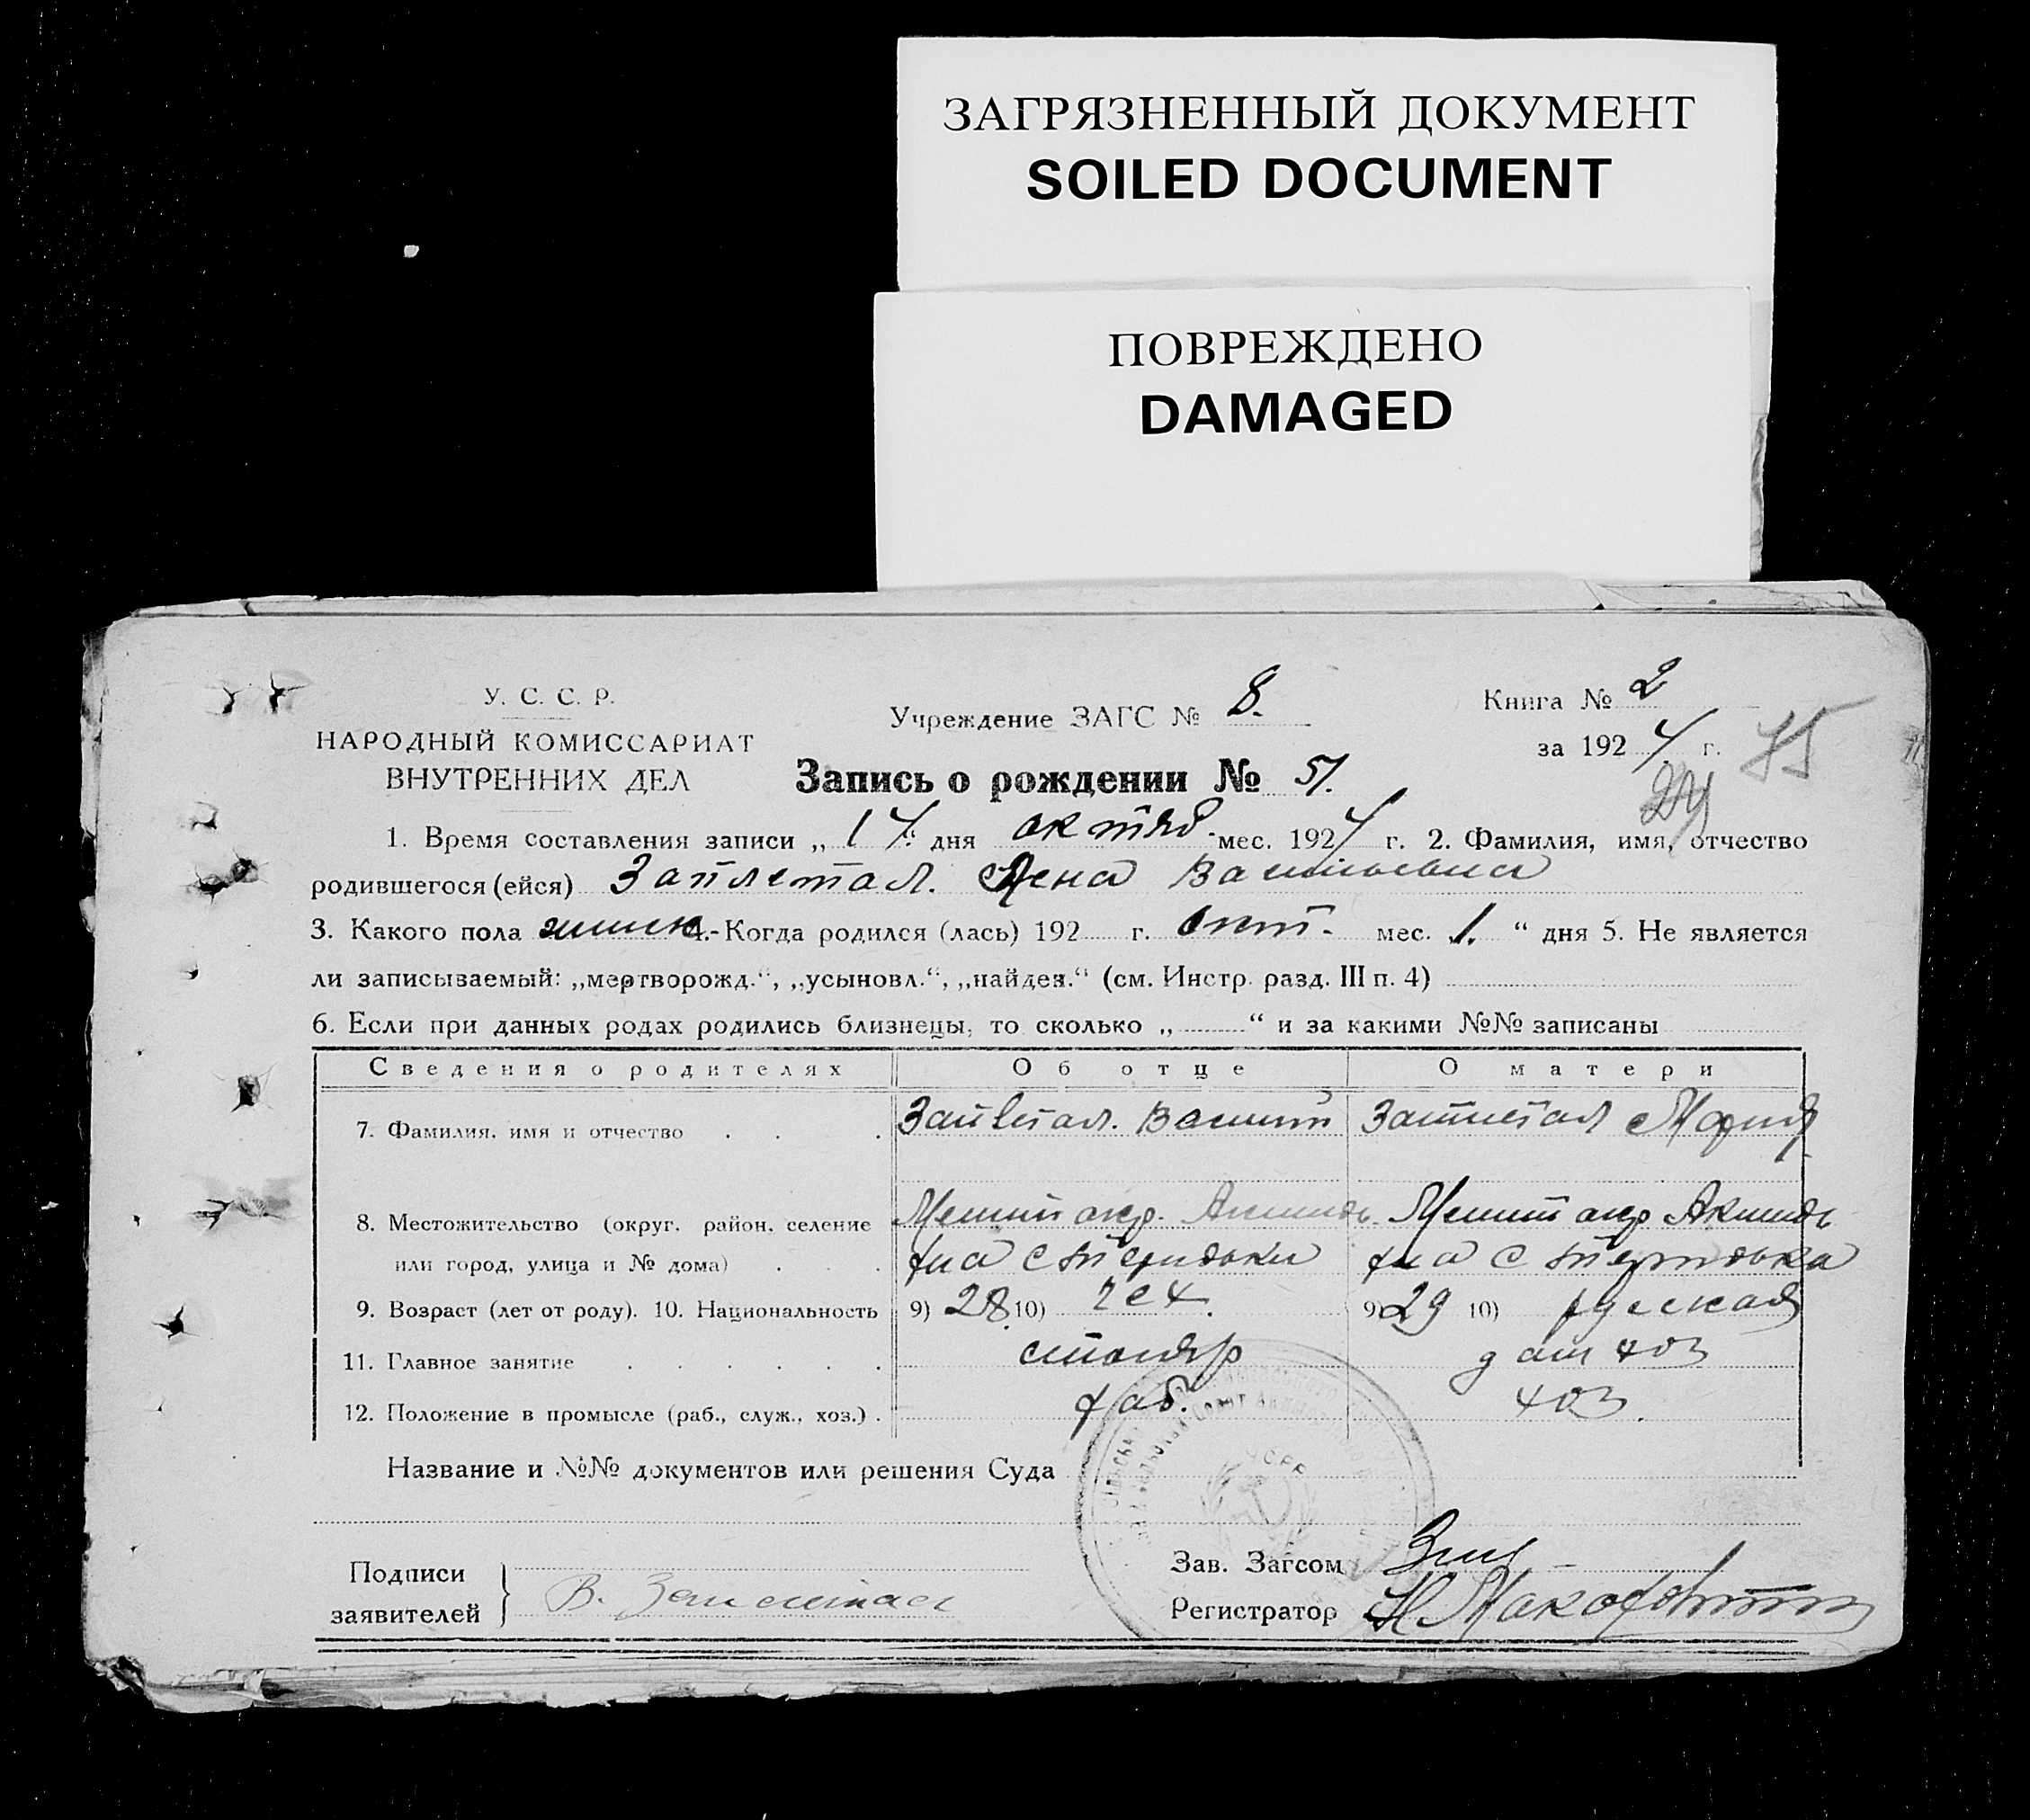 ЗАГРЯЗНЕННЫЙ ДОКУМЕНТ
SOILED DOCUMENT
ПОВРЕЖДЕНО
DAMAGED
У. С. С. Р.
НАРОДНЫЙ КОМИССАРИАТ
ВНУТРЕННИХ ДЕЛ
Учреждение ЗАГС № 8.
Книга № 2
за 1924 г. 75
Запись о рождении № 51.
1. Время составления записи „14“ дня октяб. мес. 1924 г. 2. Фамилия, имя, отчество
родившегося (ейся) Заплетал. Лена Васильевна
3. Какого пола женск 4.-Когда родился (лась) 192 г. Окт. мес. 1. “ дня 5. Не является
ли записываемый: „мертворожд.“, „усыновл.“, „найден.“ (см. Инстр. разд. III п. 4)
6. Если при данных родах родились близнецы, то сколько „ “ и за какими №№ записаны
Сведения о родителях Об отце О матери
7. Фамилия, имя и отчество Заплетал. Василий Заплетал Мария
8. Местожительство (округ, район, селение Мелит окр. Акимов Мелит окр Акимов
или город, улица и № дома)
9. Возраст (лет от роду). 10. Национальность 9) 28 10) чех. 9) 29 10) русская
11. Главное занятие столяр дом хоз
12. Положение в промысле (раб., служ., хоз.) раб. хоз.
Название и №№ документов или решения Суда
УСРР
Подписи
заявителей В. Заплетал
Зав. Загсом
Регистратор